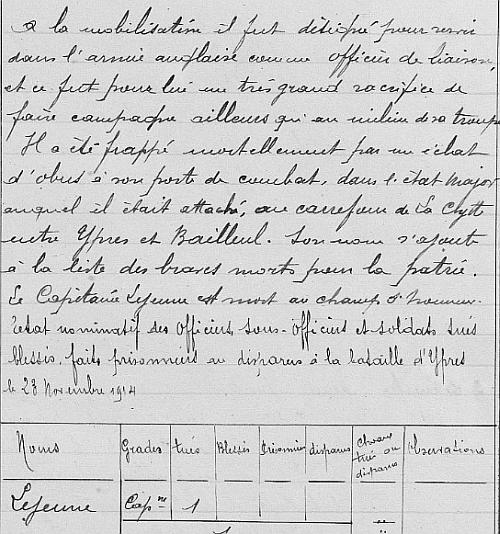 A la mobilisation il fut désigné pour servir
dans l'armée anglaise comme officier de liaison,
et ce fut pour lui un très grand sacrifice de
faire campagne ailleurs qu'au milieu de sa troupe
Il a été frappé mortellement par un éclat
d'obus à son poste de combat, dans l'état major
auquel il était attaché, au carrefour de La Clytte
entre Ypres et Bailleul. Son nom s'ajoute
à la liste des braves morts pour la patrie.
Le Capitaine Lejeune est mort au champ d'honneur.
Etat nominatif des Officiers, Sous-Officiers et Soldats tués
blessés, faits prisonniers ou disparus à la bataille d'Ypres
le 23 Novembre 1914
Noms Grades tués Blessés Prisonniers disparus Chevaux tués ou disparus Observations
Lejeune Capne 1